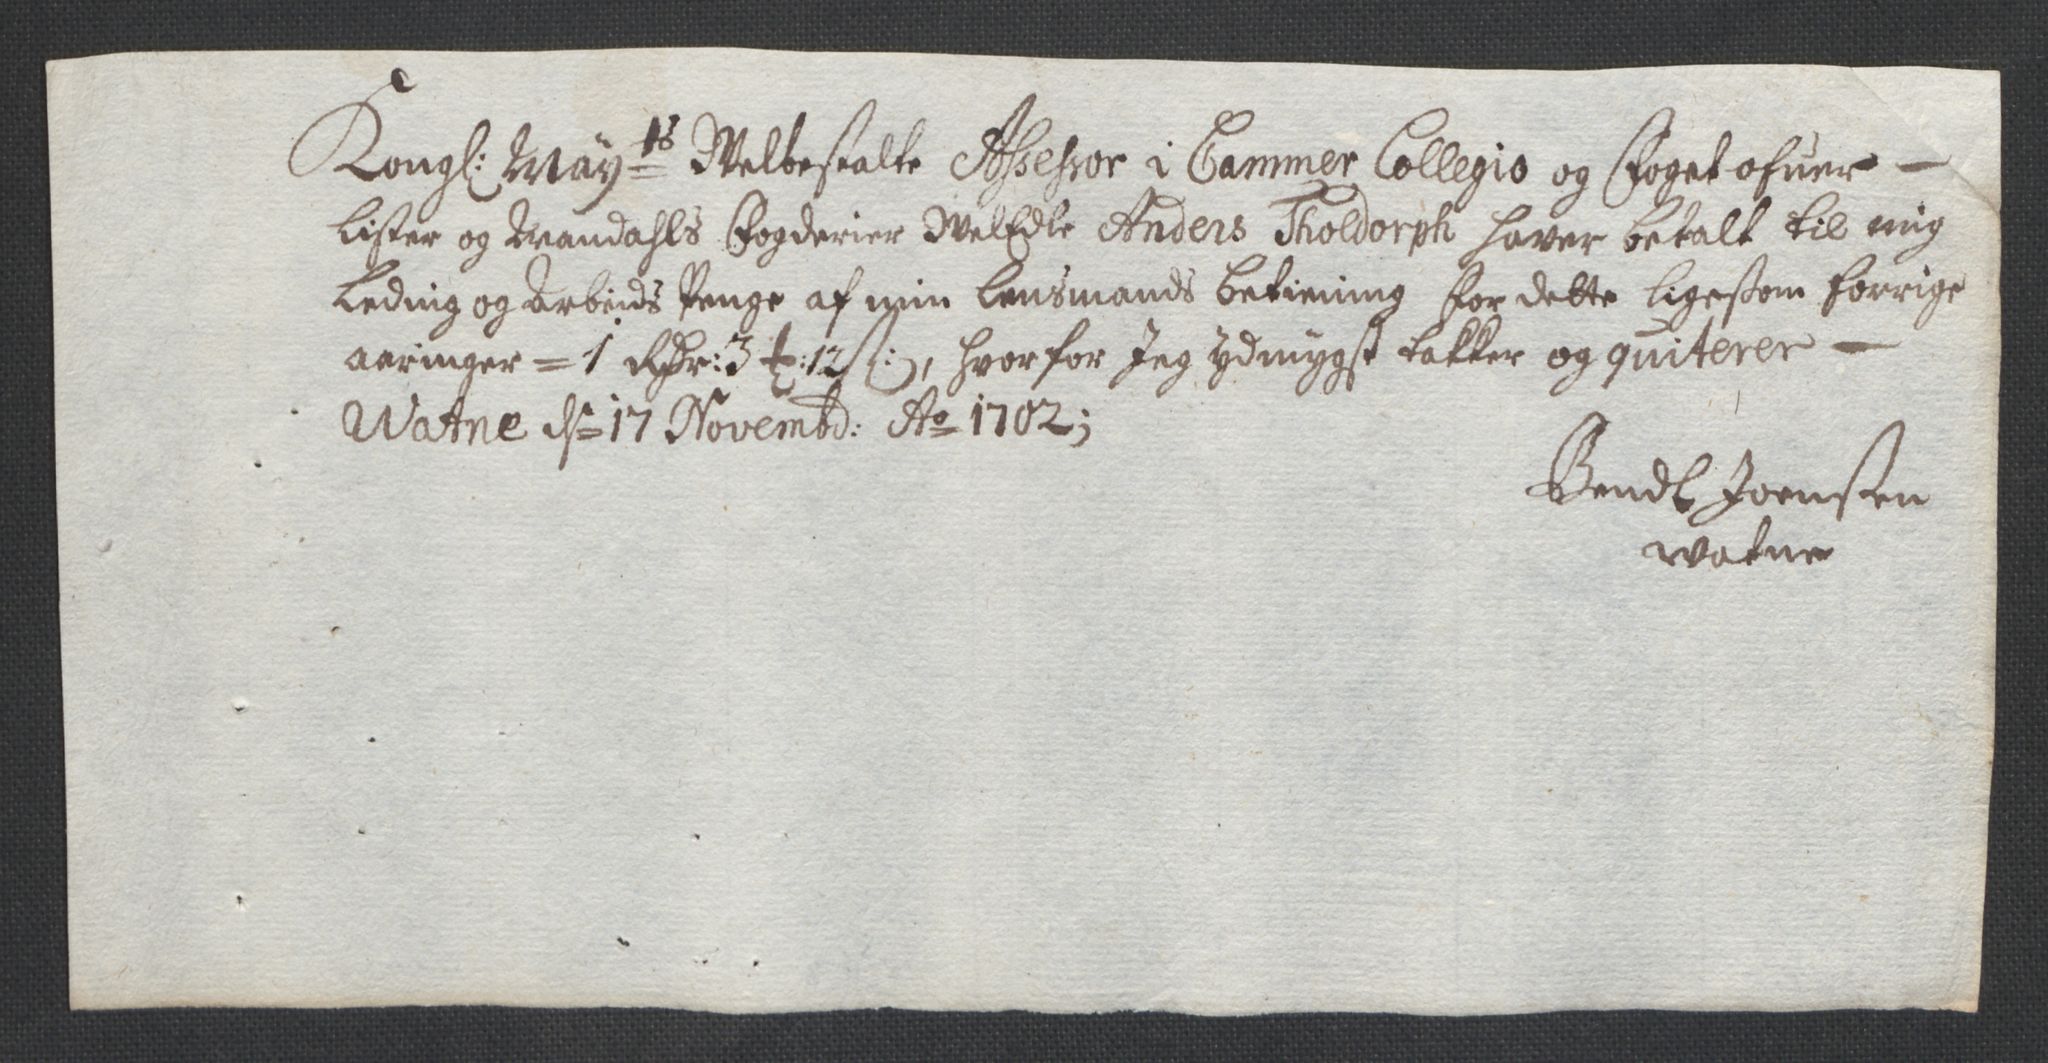 Kongl: Maÿ:ts Welbestalte Assessor i Cammer Collegio og Foget ofuer —
Lister og Mandahls Fogderier WelEdle Anders Tholdorph haver betalt til mig
Leding og Arbeids Penge af min Lensmands betiening for dette ligesom forrige
aaringer = 1 Rdr: 3 ꝉ: 12 s:, hvorfor Jeg ydmygst takker og quiterer —
Watne ds 17 Novembd: Ao 1702;
Bendt Joensen
Watne